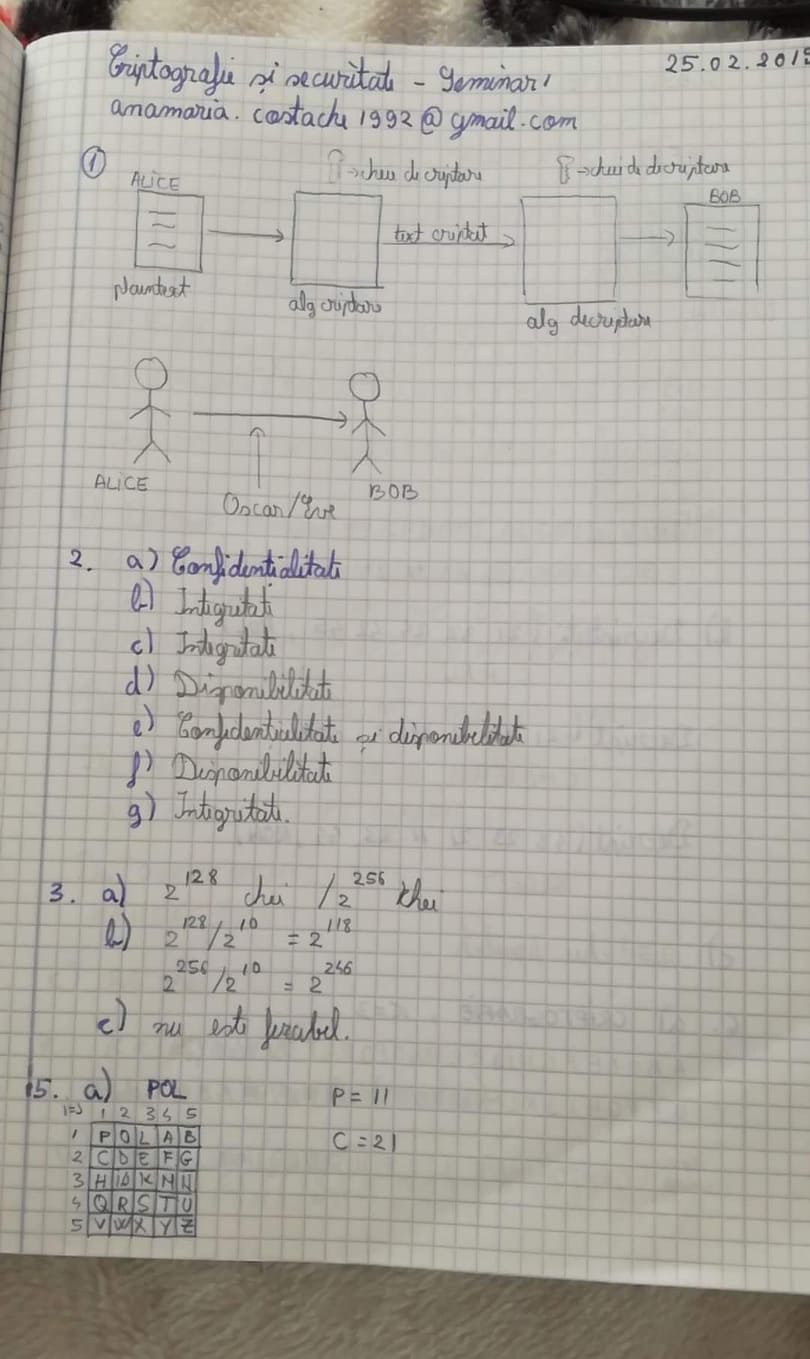 Criptografie și securitate - Seminar 1 25.02.2019
anamaria.costache1992@gmail.com
1
→ cheie de criptare → cheie de decriptare
ALICE BOB
text criptat
plaintext alg criptare alg decriptare
ALICE Oscar/Eve BOB
2. a) Confidentialitate
b) Integritate
c) Integritate
d) Disponibilitate
e) Confidentialitate și disponibilitate
f) Disponibilitate
g) Integritate.
3. a) 2^128 chei / 2^256 chei
b) 2^128/2^10 = 2^118
2^256/2^10 = 2^246
c) nu este fezabil.
5. a) POL P = 11
1 2 3 4 5
1 P O L A B C = 21
2 C D E F G
3 H I J K M N
4 Q R S T U
5 V W X Y Z